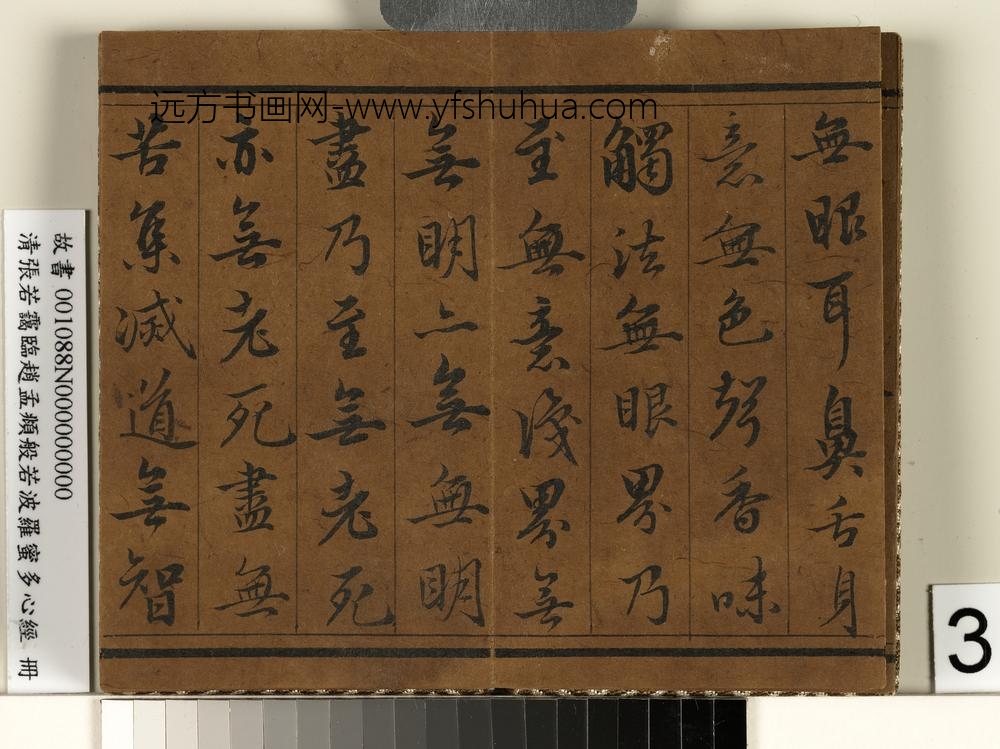 远方书画网-www.yfshuhua.com
無眼耳鼻舌身
意無色聲香味
觸法無眼界乃
至無意識界無
無明亦無無明
盡乃至無老死
亦無老死盡無
苦集滅道無智
故書 001088N000000000
清張若靄臨趙孟頫般若波羅蜜多心經 冊
3